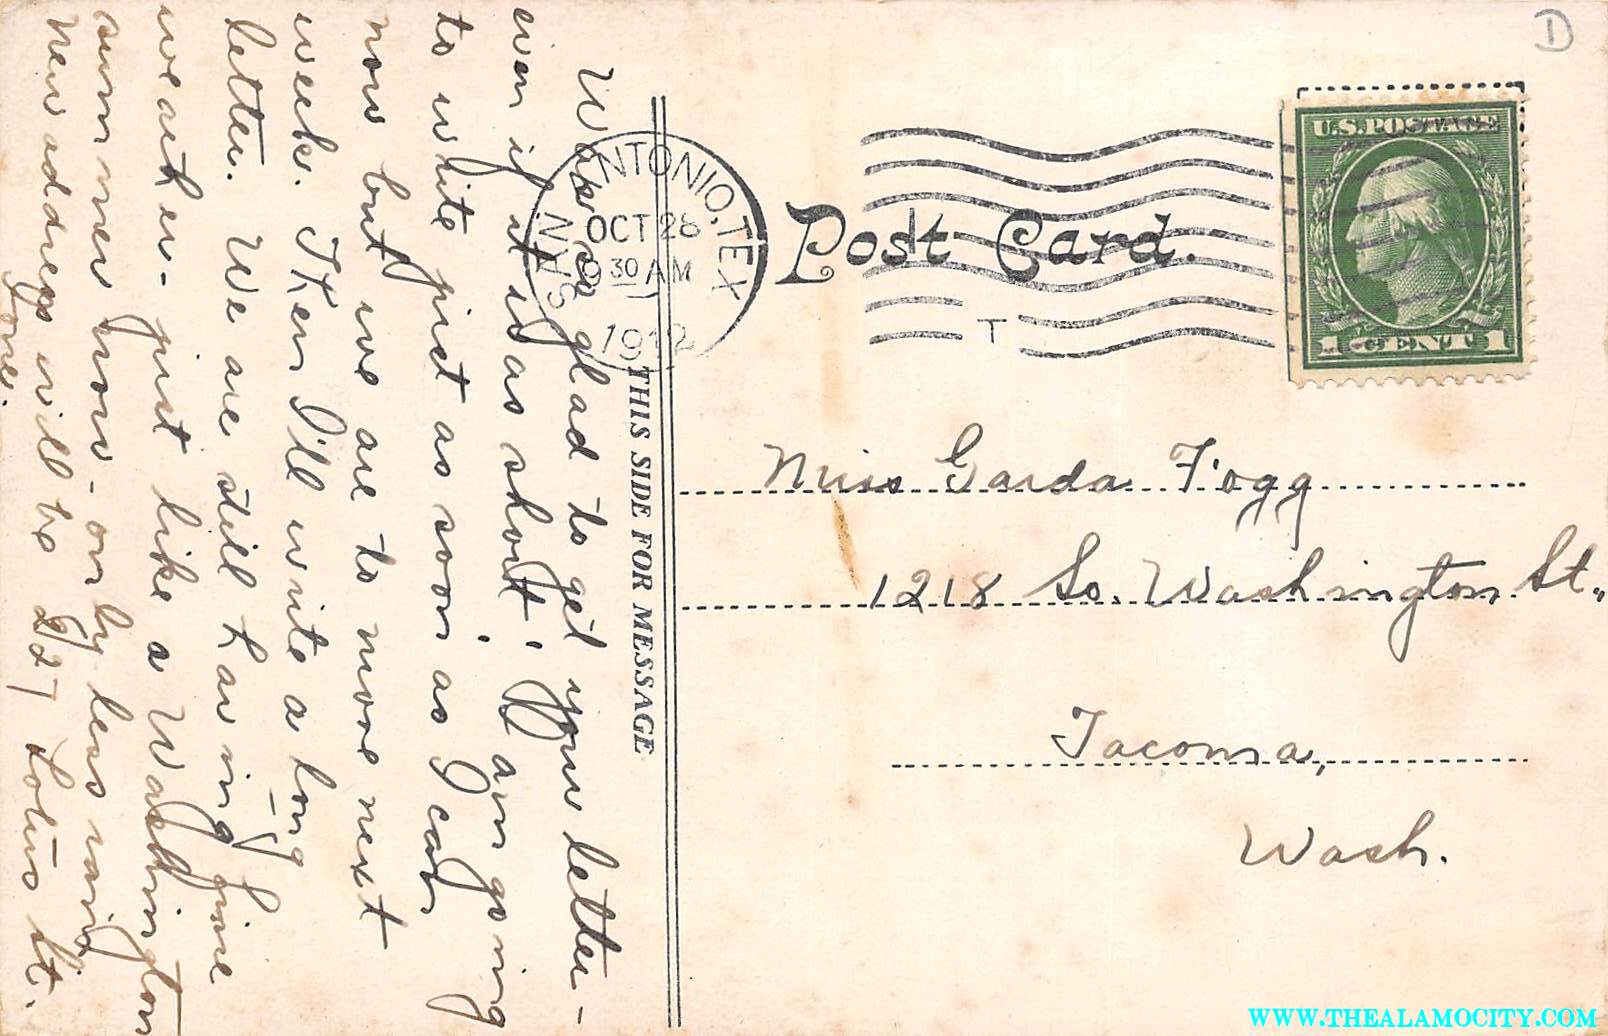 D
U.S. POSTAGE
1 CENT 1
SAN ANTONIO, TEX
OCT 28
9 30 AM
1912
T
Post Card.
THIS SIDE FOR MESSAGE
Miss Garda Fogg
1218 So. Washington St.,
Tacoma,
Wash.
Was so glad to get your letter -
even if it was short! I am going
to write just as soon as I can
now but we are to move next
week. Then I'll write a long
letter. We are still having fine
weather - just like a Washington
summer now - only less rain
New address will be 227 Lotus St.
WWW.THEALAMOCITY.COM